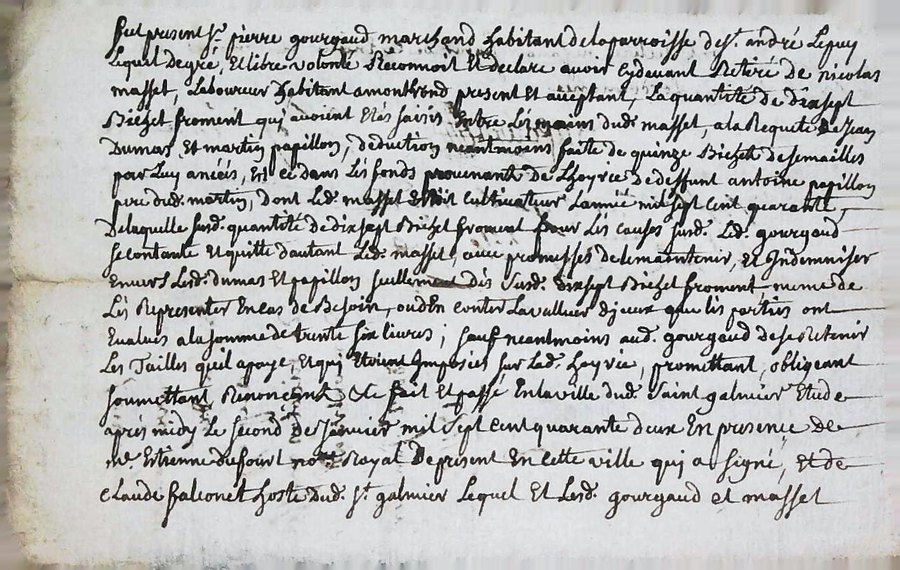 fut present Sr. pierre gourgaud marchand habitant de la parroisse de st. andré Lepuy
Lequel de gré, Et libre volonté Reconnoit Et declare avoir Cydevant Retiré de nicolas
masset, Laboureur habitant a montrond present Et acceptant, La quantité de dixsept
Bichet froment qui avoient Etés saisis Entre Les mains dud. masset, a la Requete de Jean
Dumas Et martin papillon, deduction neantmoins faite de quinze Bichets de semailles
par Luy, Et ce dans Les fonds provenants de Lhoyrie de deffunt antoine papillon
pere dud. martin, dont Led. masset Etoit Cultivateur Lannée mil sept Cent quarante,
De laquelle susd. quantité de dixsept Bichet froment pour Les causes susd. Led. gourgaud
se contante Et quitte dautant Led. masset, avec promesses de Le maintenir, Et Indemniser
Envers Lesd. dumas Et papillon seullement des susd. dixsept Bichet froment meme de
Les Representer En cas de Besoin, ou d'En conter La valleur d'jceux que les parties ont
Evalués a la somme de trente six livres; sauf neantmoins aud. gourgaud de se retenir
Les Tailles qu'il a payé, Et qui Etoient Imposées sur Lad. hoyrie, promettant, obligeant
soumettant, Renonceant &c fait Et passé En la ville dud. Saint galmier Etude
après midy Le second de Janvier mil sept cent quarante deux En presence de
me. Estienne dufourt nore. Royal De present En cette ville qui a signé, Et de
Claude falconet hoste dud. st. galmier Lequel Et Lesd. gourgaud et masset